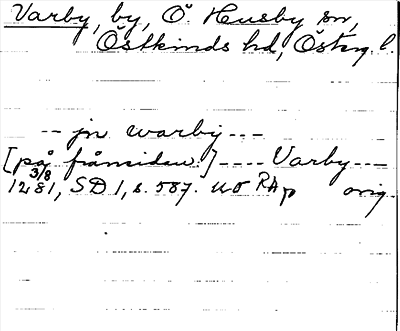 Varby, by, Ö. Husby sn,
Östkinds hd, Österg. l.
-- jn warby ---
[på framsidan] ---- Varby ---
3/8
1281, SD 1, s. 587. uo RAp orig.